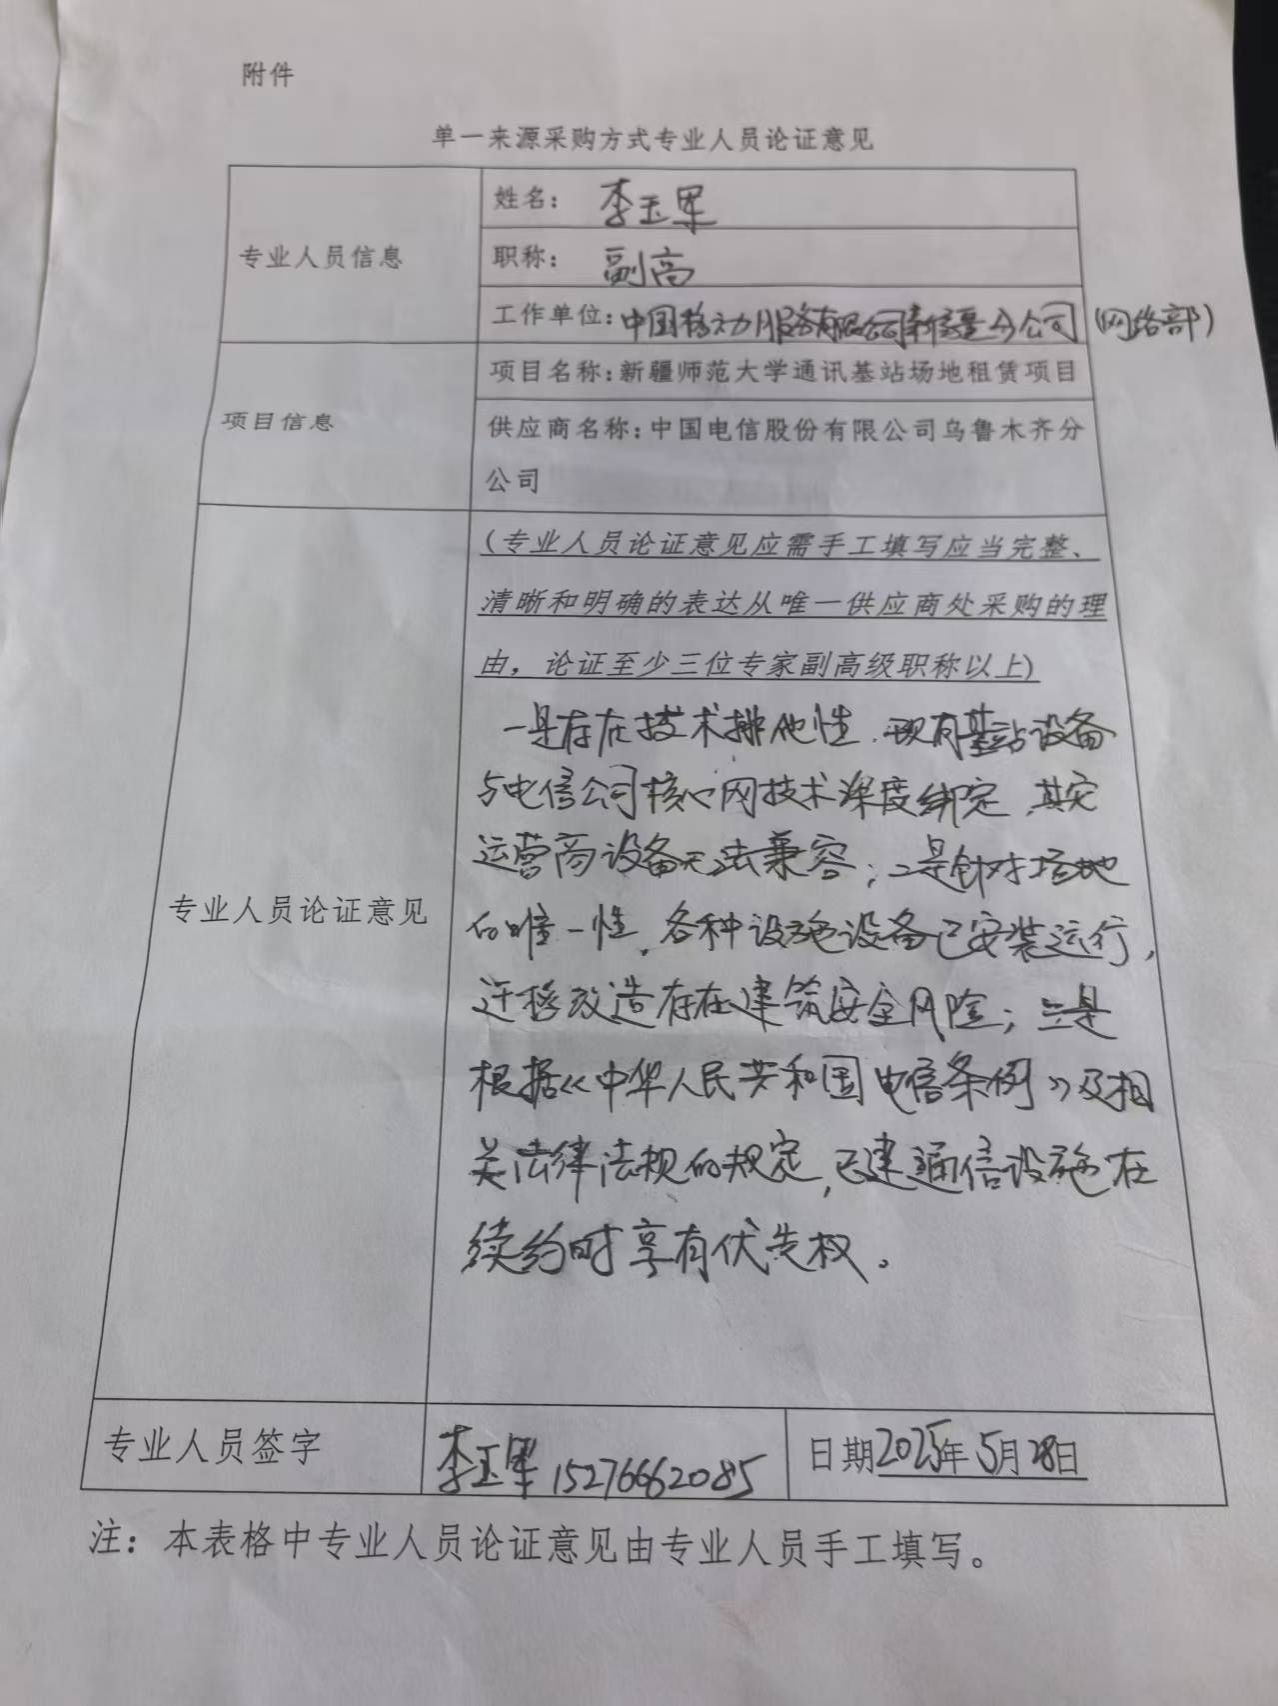 附件
单一来源采购方式专业人员论证意见
专业人员信息
姓名: 李玉军
职称: 副高
工作单位: 中国移动服务有限公司新疆分公司 (网络部)
项目信息
项目名称: 新疆师范大学通讯基站场地租赁项目
供应商名称: 中国电信股份有限公司乌鲁木齐分
公司
专业人员论证意见
(专业人员论证意见应需手工填写应当完整、
清晰和明确的表达从唯一供应商处采购的理
由,论证至少三位专家副高级职称以上)
一是存在技术排他性,现有基站设备
与电信公司核心网技术深度绑定,其它
运营商设备无法兼容;二是针对场地
的唯一性,各种设施设备已安装运行,
迁移改造存在建筑安全风险;三是
根据《中华人民共和国电信条例》及相
关法律法规的规定,已建通信设施在
续约时享有优先权。
专业人员签字
李玉军 15276662085
日期2025年5月28日
注: 本表格中专业人员论证意见由专业人员手工填写。